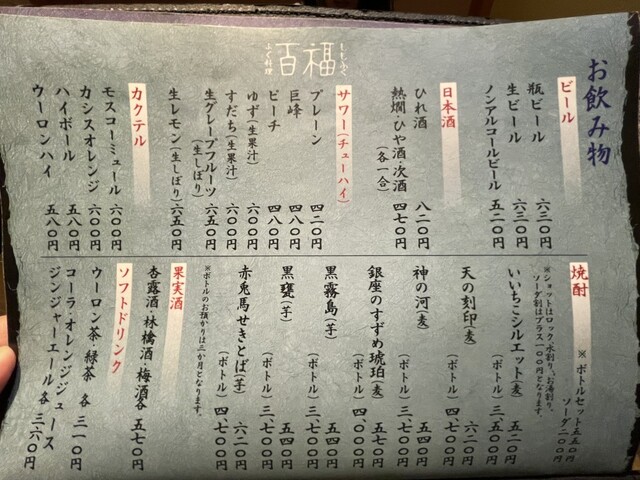 ふく料理
百福
ももふく
お飲み物
ビール
瓶ビール 六三〇円
生ビール 六三〇円
ノンアルコールビール 五二〇円
日本酒
ひれ酒 八二〇円
熱燗・ひや酒・次酒(各一合) 四七〇円
サワー(チューハイ)
プレーン 四二〇円
巨峰 四八〇円
ピーチ 四八〇円
ゆず(生果汁) 六〇〇円
すだち(生果汁) 六〇〇円
生グレープフルーツ(生しぼり) 六五〇円
生レモン(生しぼり) 六五〇円
カクテル
モスコーミュール 六〇〇円
カシスオレンジ 六〇〇円
ハイボール 五八〇円
ウーロンハイ 五八〇円
焼酎
※ボトルセット五五〇円
ソーダ二〇〇円
※ショットはロック、水割り、お湯割り、
ソーダ割はプラス一〇〇円となります。
いいちこシルエット(麦) 五二〇円
(ボトル) 三、五〇〇円
天の刻印(麦) 六二〇円
(ボトル) 四七〇〇円
神の河(麦) 五四〇円
(ボトル) 三、七〇〇円
銀座のすずめ琥珀(麦) 五七〇円
(ボトル) 四〇〇〇円
黒霧島(芋) 五四〇円
(ボトル) 三、七〇〇円
黒甕(芋) 五四〇円
(ボトル) 三、七〇〇円
赤兎馬せきとば(芋) 六二〇円
(ボトル) 四七〇〇円
※ボトルのお預かりは三か月となります。
果実酒
杏露酒・林檎酒・梅酒各 五七〇円
ソフトドリンク
ウーロン茶・緑茶 各 三一〇円
コーラ・オレンジジュース
ジンジャーエール 各 三六〇円